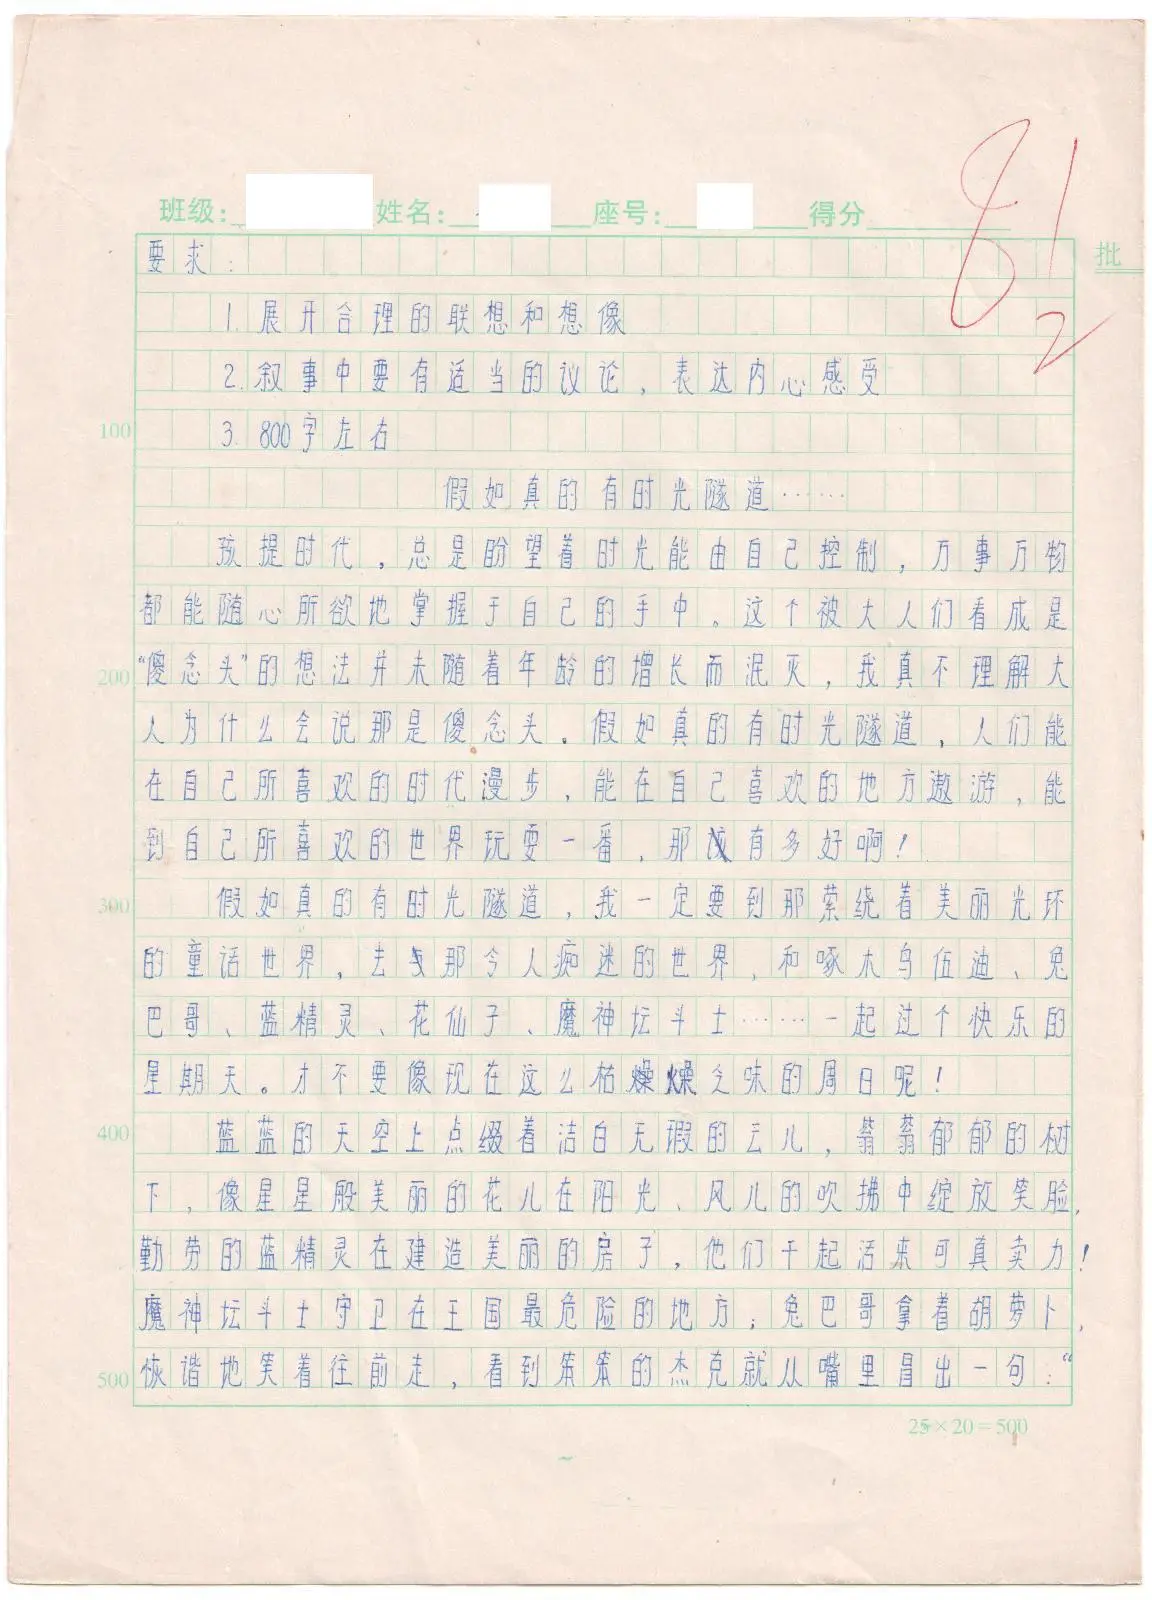 班级： 姓名： 座号： 得分
81
2
批
要求：
1. 展开合理的联想和想像
2. 叙事中要有适当的议论，表达内心感受
100
3. 800字左右
假如真的有时光隧道……
孩提时代，总是盼望着时光能由自己控制，万事万物
都能随心所欲地掌握于自己的手中。这个被大人们看成是
200
“傻念头”的想法并未随着年龄的增长而泯灭，我真不理解大
人为什么会说那是傻念头。假如真的有时光隧道，人们能
在自己所喜欢的时代漫步，能在自己喜欢的地方遨游，能
到自己所喜欢的世界玩耍一番，那该有多好啊！
300
假如真的有时光隧道，我一定要到那萦绕着美丽光环
的童话世界，去与那令人痴迷的世界，和啄木鸟伍迪、兔
巴哥、蓝精灵、花仙子、魔神坛斗士……一起过个快乐的
星期天。才不要像现在这么枯燥之味的周日呢！
400
蓝蓝的天空上点缀着洁白无瑕的云儿，蓊蓊郁郁的树
下，像星星般美丽的花儿在阳光、风儿的吹拂中绽放笑脸，
勤劳的蓝精灵在建造美丽的房子，他们干起活来可真卖力！
魔神坛斗士守卫在王国最危险的地方；兔巴哥拿着胡萝卜，
500
恢谐地笑着往前走，看到笨笨的杰克就从嘴里冒出一句：“
25×20=500